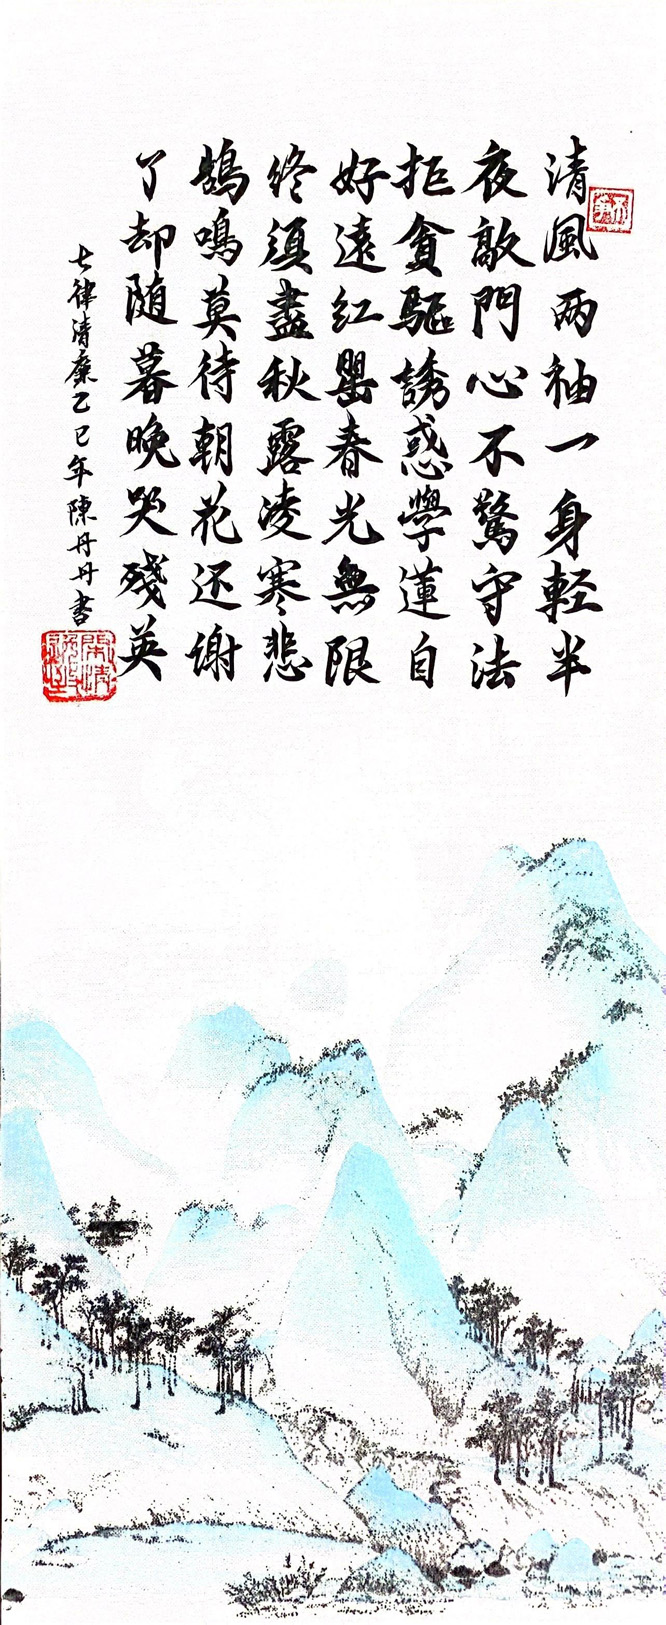 清風兩袖一身軽半
夜敲門心不驚守法
拒貪驅誘惑學蓮自
好遠紅罌春光無限
終須盡秋露凌寒悲
鵠鳴莫待朝花还谢
了却随暮晚哭殘英
七律清廉乙巳年陳丹丹書